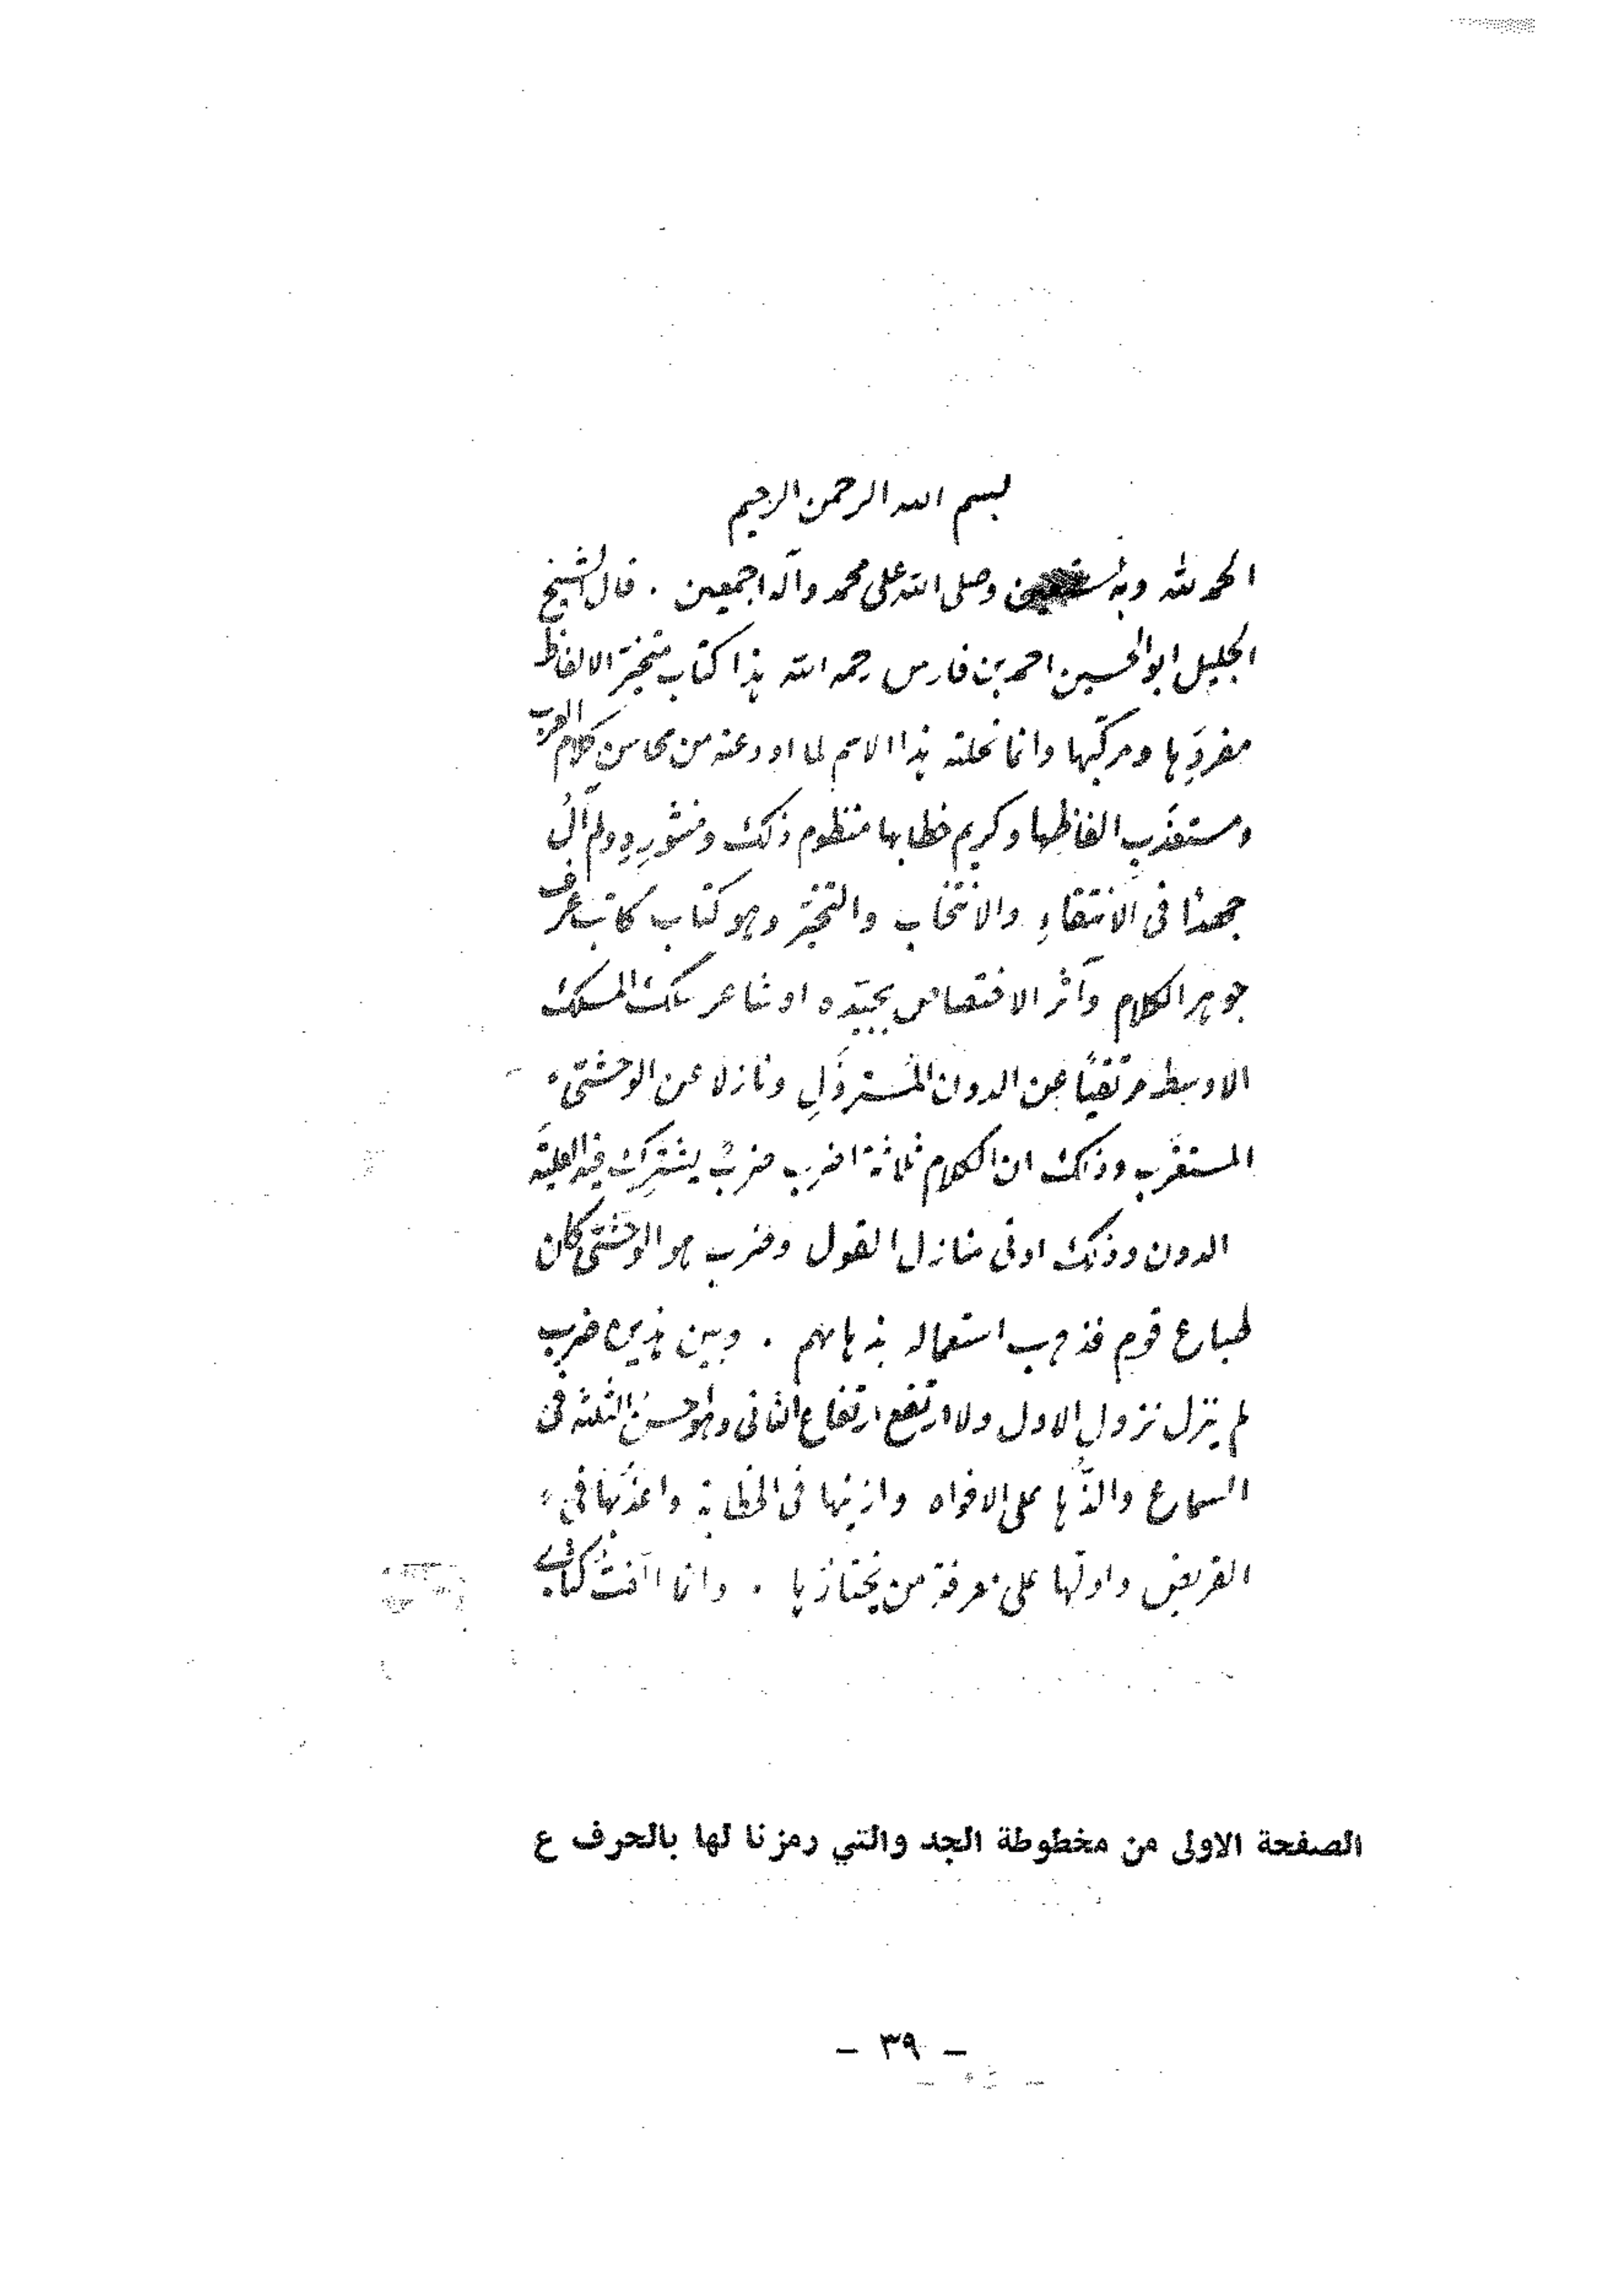 بسم الله الرحمن الرحيم
الحمد لله وبه نستعين وصلى الله على محمد وآله اجمعين . قال الشيخ
الجليل ابو الحسين احمد بن فارس رحمه الله هذا كتاب متخيّر الالفاظ
مفردِها ومركبّها وانما نحلته هذا الاسم لما اودعته من محاسن كلام العرب
ومستعذَبِ الفاظها وكريم خطابها منظوم ذلك ومنثورِه ولم آلُ
جهدًا فى الانتقاءِ والانتخاب والتخيّر وهو كتاب كاتب عرف
جوهر الكلام وآثر الاختصاص بجيّده او شاعر سلك المسلك
الاوسط مرتقيًا عن الدون المُسترذَلِ ونازلا عن الوحشيّ
المستغرَب وذلك ان الكلام ثلاثة اضرب ضربٌ يشترك فيه العليَة
الدون وذلك ادنى منازل القول وضرب هو الوحشى كان
طباع قوم فذهب استعماله بذهابهم . وبين هذين ضرب
لم ينزل نزول الاول ولا ارتفع ارتفاع الثانى وهو احسنُ الثلثة فى
السماع والذّها على الافواه وازينها فى الخطابة واعذبُها فى
القريض وادلّها على معرفةِ من يختارُها . وانما الّفتُ كتابى
الصفحة الاولى من مخطوطة الجد والتي رمزنا لها بالحرف ع
– ٣٩ –